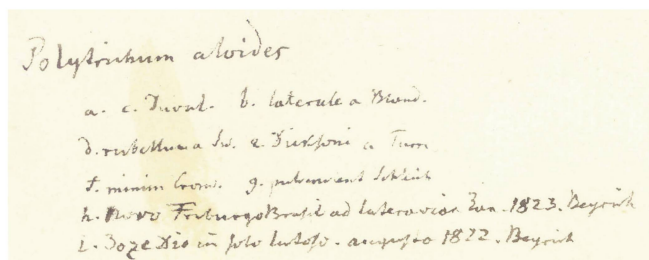 Polytrichum aloides
a. c. Duval. b. laterale a Brand.
d. rubellum a Sw. e. Dicksoni a Turn
f. minim Crom. g. Schleich
h. Novo Friburgo Brasil ad latera viar. Jan. 1823. Beyrich
i. in solo lutoso. augusto 1822. Beyrich